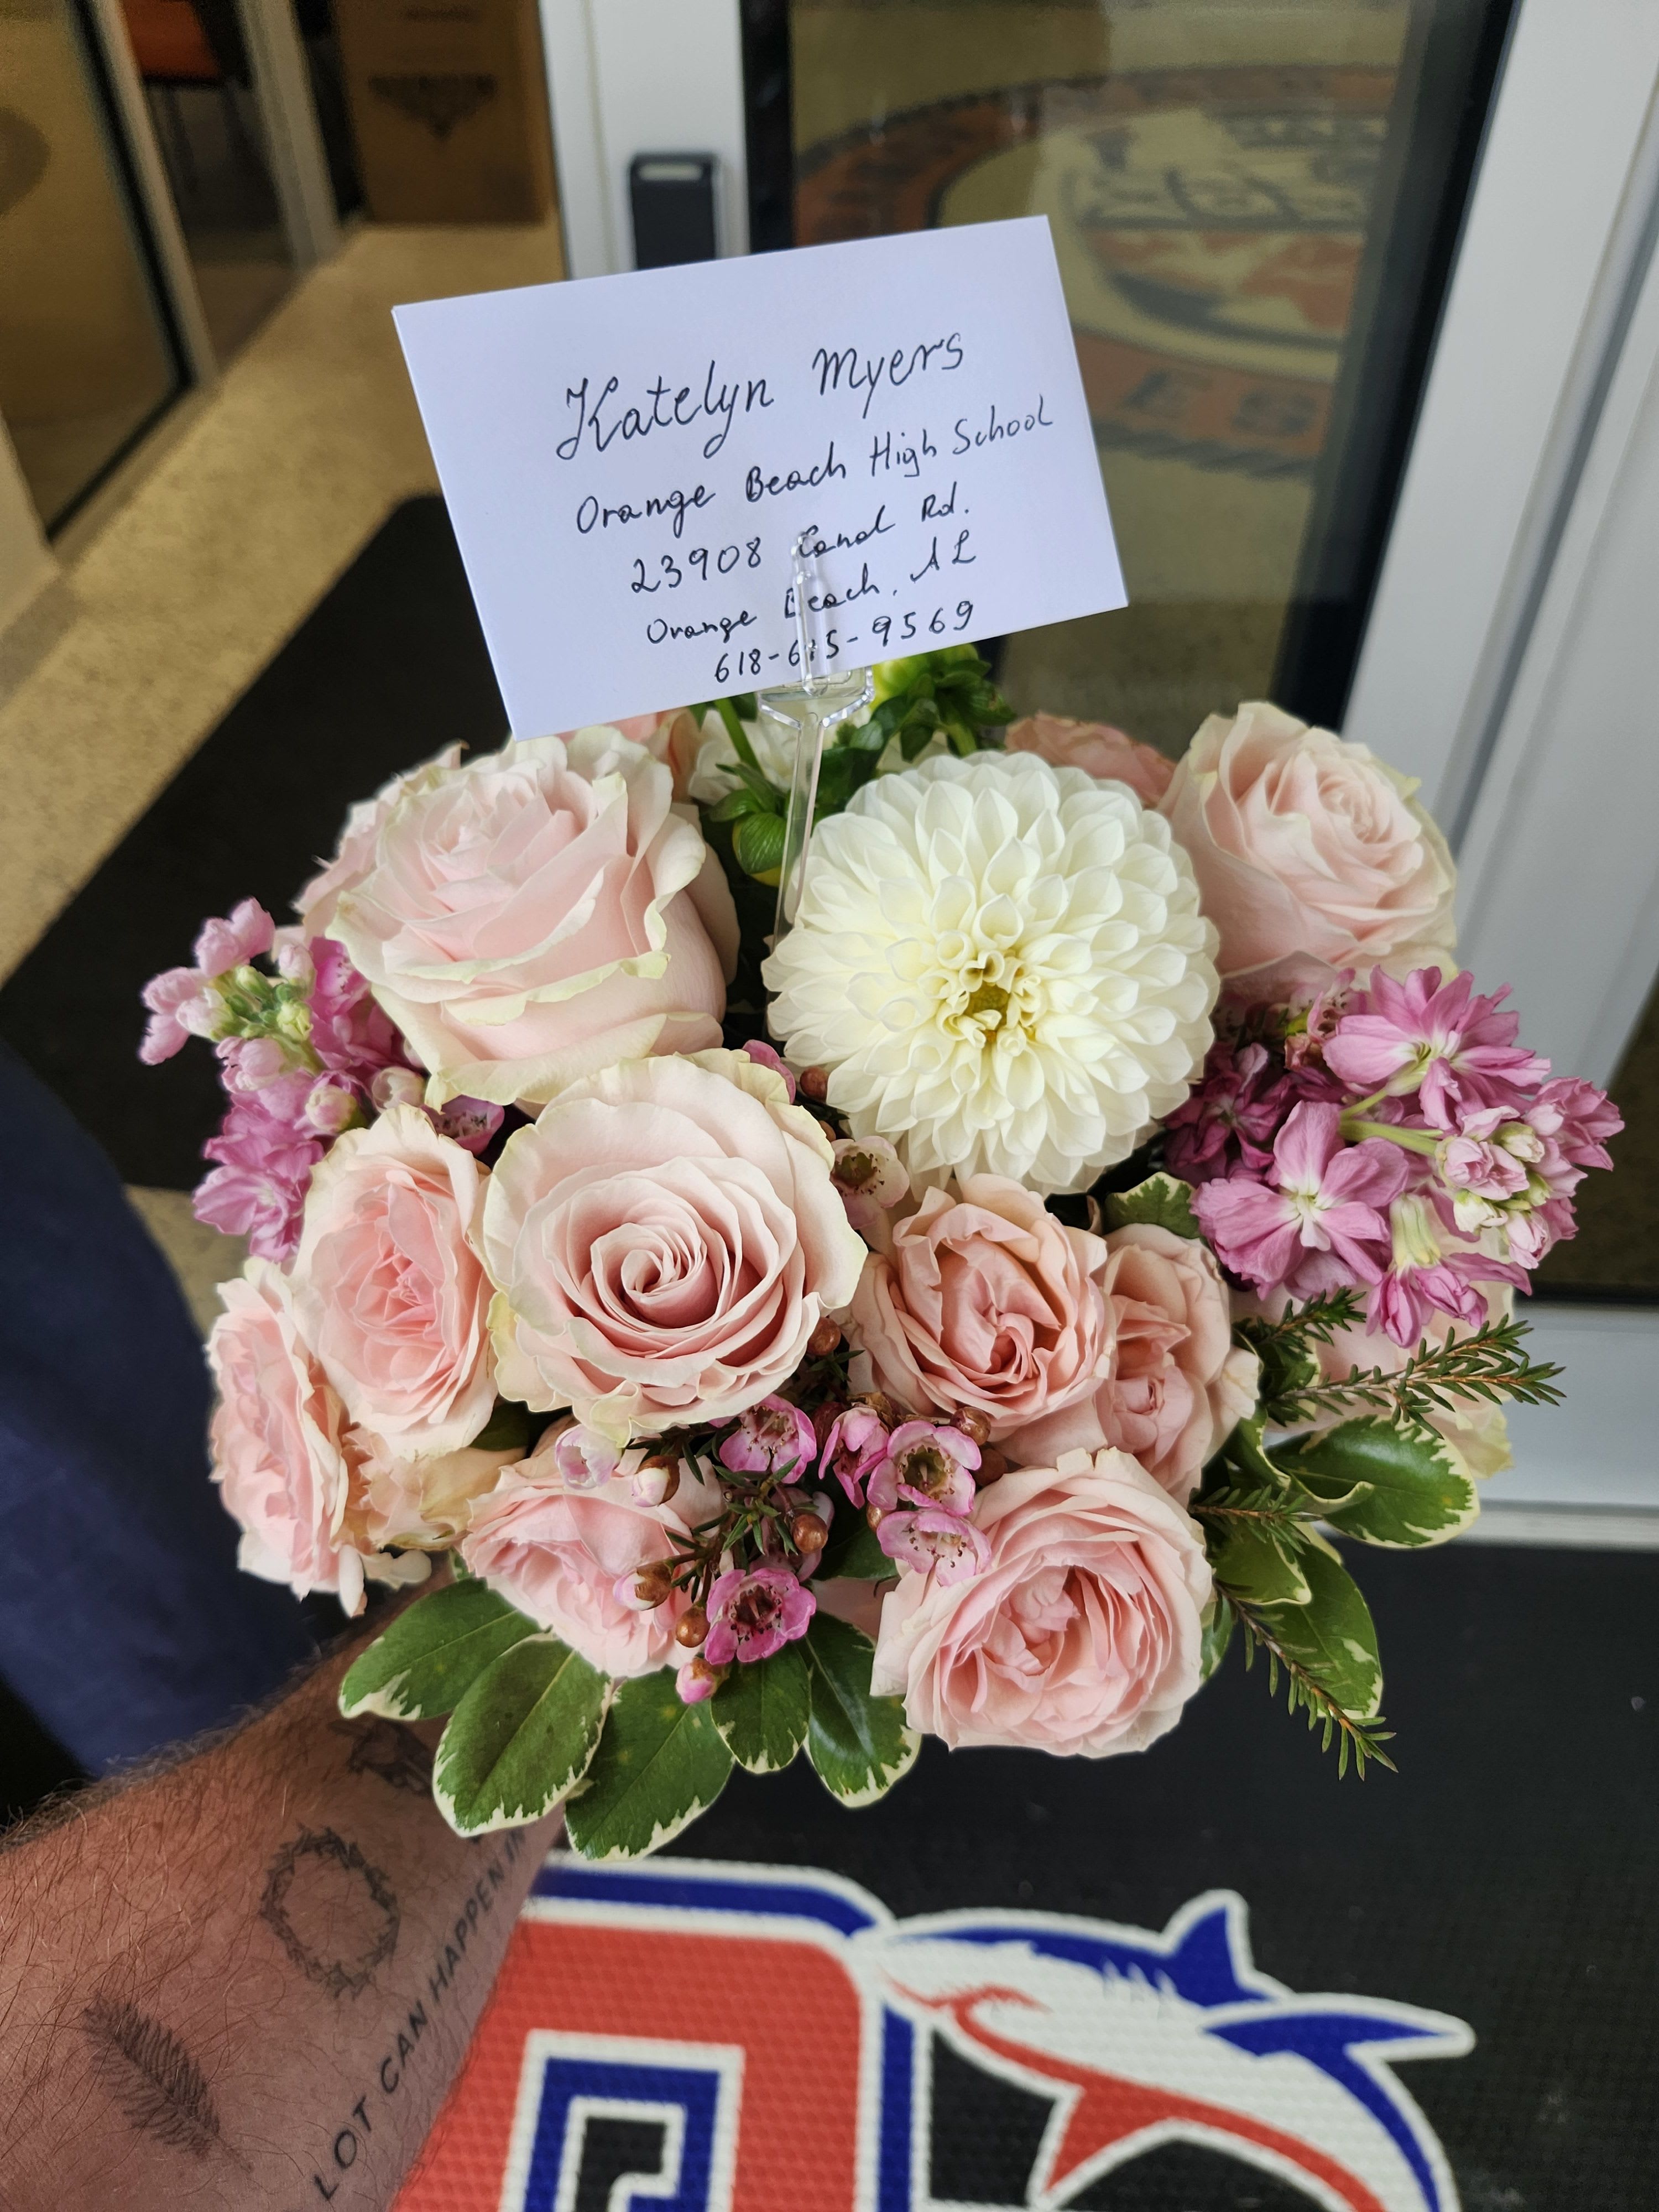 Katelyn Myers
Orange Beach High School
23908 Canal Rd.
Orange Beach, AL
618-615-9569
LOT CAN HAPPEN IN